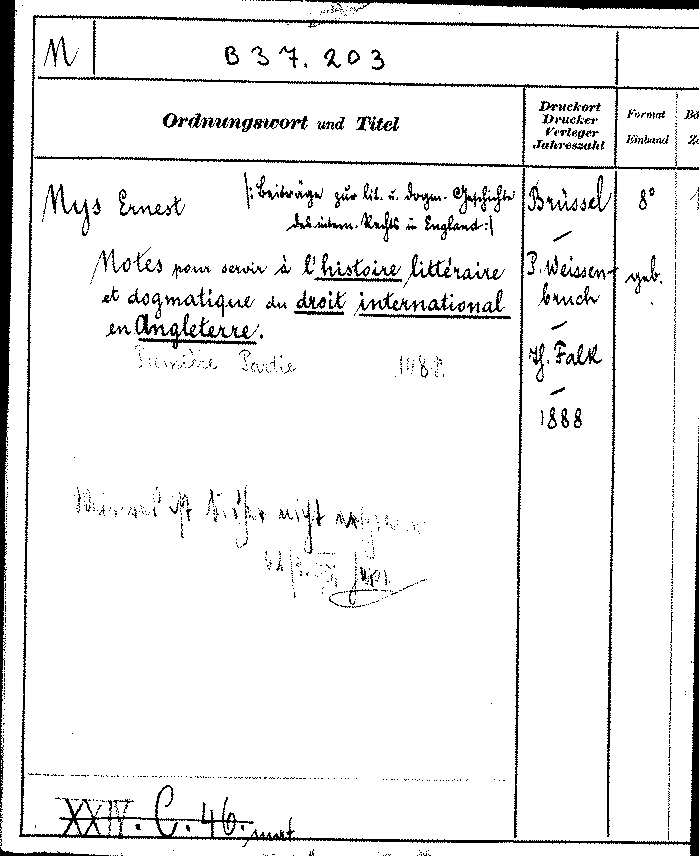 M
B 37. 203
Ordnungswort und Titel
Druckort
Drucker
Verleger
Jahreszahl
Format
Einband
Bä
Mys Ernest
|: Beiträge zur lit. u. dogm. Geschichte
des intern. Rechts in England :|
Notes pour servir à l'histoire littéraire
et dogmatique du droit international
en Angleterre.
Première Partie 1888.
Brüssel
–
P. Weissen-
bruch
–
Th. Falk
–
1888
8°
geb.
1
ist bisher nicht
XXIV. C. 46.